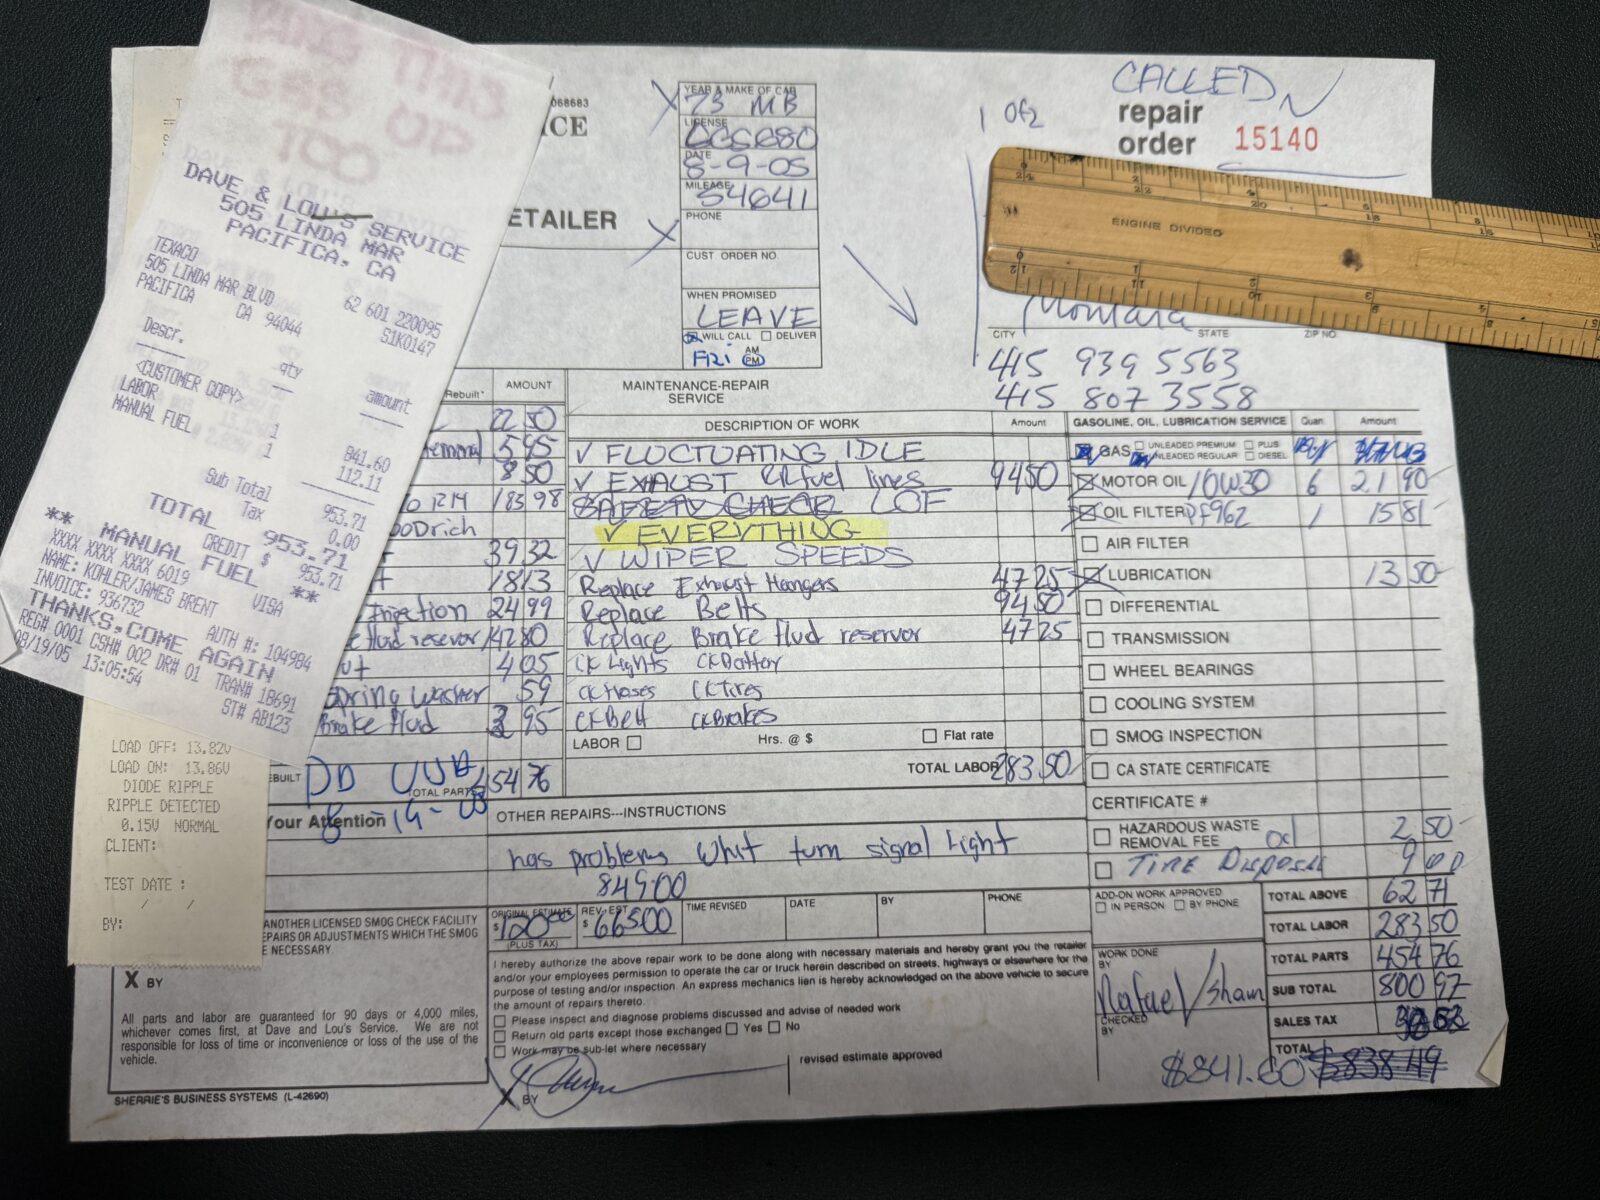 DAVE & LOU'S SERVICE
505 LINDA MAR
PACIFICA, CA
TEXACO
505 LINDA MAR BLVD
PACIFICA CA 94044
62 601 220095
S1K0147
Descr. qty amount
<CUSTOMER COPY>
LABOR 1 841.60
MANUAL FUEL 1 112.11
Sub Total 953.71
Tax 0.00
TOTAL 953.71
CREDIT $ 953.71
** MANUAL FUEL **
XXXX XXXX XXXX 6019 VISA
NAME: KOHLER/JAMES BRENT
INVOICE: 936732 AUTH #: 104984
THANKS, COME AGAIN
REG# 0001 CSH# 002 DR# 01 TRAN# 18691
08/19/05 13:05:54 ST# AB123
LOAD OFF: 13.82V
LOAD ON: 13.86V
DIODE RIPPLE
RIPPLE DETECTED
0.15V NORMAL
CLIENT:
TEST DATE :
/ /
BY:
068683
ICE
ETAILER
YEAR & MAKE OF CAR
73 MB
LICENSE
DATE
8-9-05
MILEAGE
54641
PHONE
CUST ORDER NO.
WHEN PROMISED
LEAVE
WILL CALL DELIVER
FRI AM PM
1 of 2
CALLED
repair
order 15140
ENGINE DIVIDED
Montara
CITY STATE ZIP NO.
415 939 5563
415 807 3558
Rebuilt* AMOUNT
22 50
5 45
8 50
185 98
OODrich
39 32
18 13
Injection 24 99
fluid reservor 142 80
4 05
Spring Washer 59
Brake fluid 3 95
EBUILT
TOTAL PARTS 454 76
8-19-05
MAINTENANCE-REPAIR
SERVICE
DESCRIPTION OF WORK Amount
✓ FLUCTUATING IDLE
✓ EXHAUST RR fuel lines 94 50
SAFETY CHECK LOF
✓ EVERYTHING
✓ WIPER SPEEDS
Replace Exhaust Hangers 47 25
Replace Belts 94 50
Replace Brake fluid reservor 47 25
CK Lights CK Battery
CK Hoses CK Tires
CK Belt CK Brakes
LABOR Hrs. @ $ Flat rate
TOTAL LABOR 283.50
GASOLINE, OIL, LUBRICATION SERVICE Quan. Amount
GAS UNLEADED PREMIUM PLUS
UNLEADED REGULAR DIESEL
MOTOR OIL 10W30 6 21 90
OIL FILTER 1 15 81
AIR FILTER
LUBRICATION 13 50
DIFFERENTIAL
TRANSMISSION
WHEEL BEARINGS
COOLING SYSTEM
SMOG INSPECTION
CA STATE CERTIFICATE
CERTIFICATE #
HAZARDOUS WASTE
REMOVAL FEE 2 50
Tire Disposal 9 00
Your Attention
OTHER REPAIRS---INSTRUCTIONS
has problems whit turn signal light
849.00
ORIGINAL ESTIMATE
$ 120.00
(PLUS TAX)
REV. EST.
$ 665.00
TIME REVISED DATE BY PHONE
ADD-ON WORK APPROVED
IN PERSON BY PHONE
TOTAL ABOVE 62 71
TOTAL LABOR 283 50
TOTAL PARTS 454 76
SUB TOTAL 800 97
SALES TAX
TOTAL $838 49
$841.60
WORK DONE
BY
Rafael/Shawn
CHECKED
BY
ANOTHER LICENSED SMOG CHECK FACILITY
EPAIRS OR ADJUSTMENTS WHICH THE SMOG
E NECESSARY.
X BY
All parts and labor are guaranteed for 90 days or 4,000 miles,
whichever comes first, at Dave and Lou's Service. We are not
responsible for loss of time or inconvenience or loss of the use of the
vehicle.
SHERRIE'S BUSINESS SYSTEMS (L-42690)
I hereby authorize the above repair work to be done along with necessary materials and hereby grant you the retailer
and/or your employees permission to operate the car or truck herein described on streets, highways or elsewhere for the
purpose of testing and/or inspection. An express mechanics lien is hereby acknowledged on the above vehicle to secure
the amount of repairs thereto.
Please inspect and diagnose problems discussed and advise of needed work
Return old parts except those exchanged Yes No
Work may be sub-let where necessary
revised estimate approved
X BY